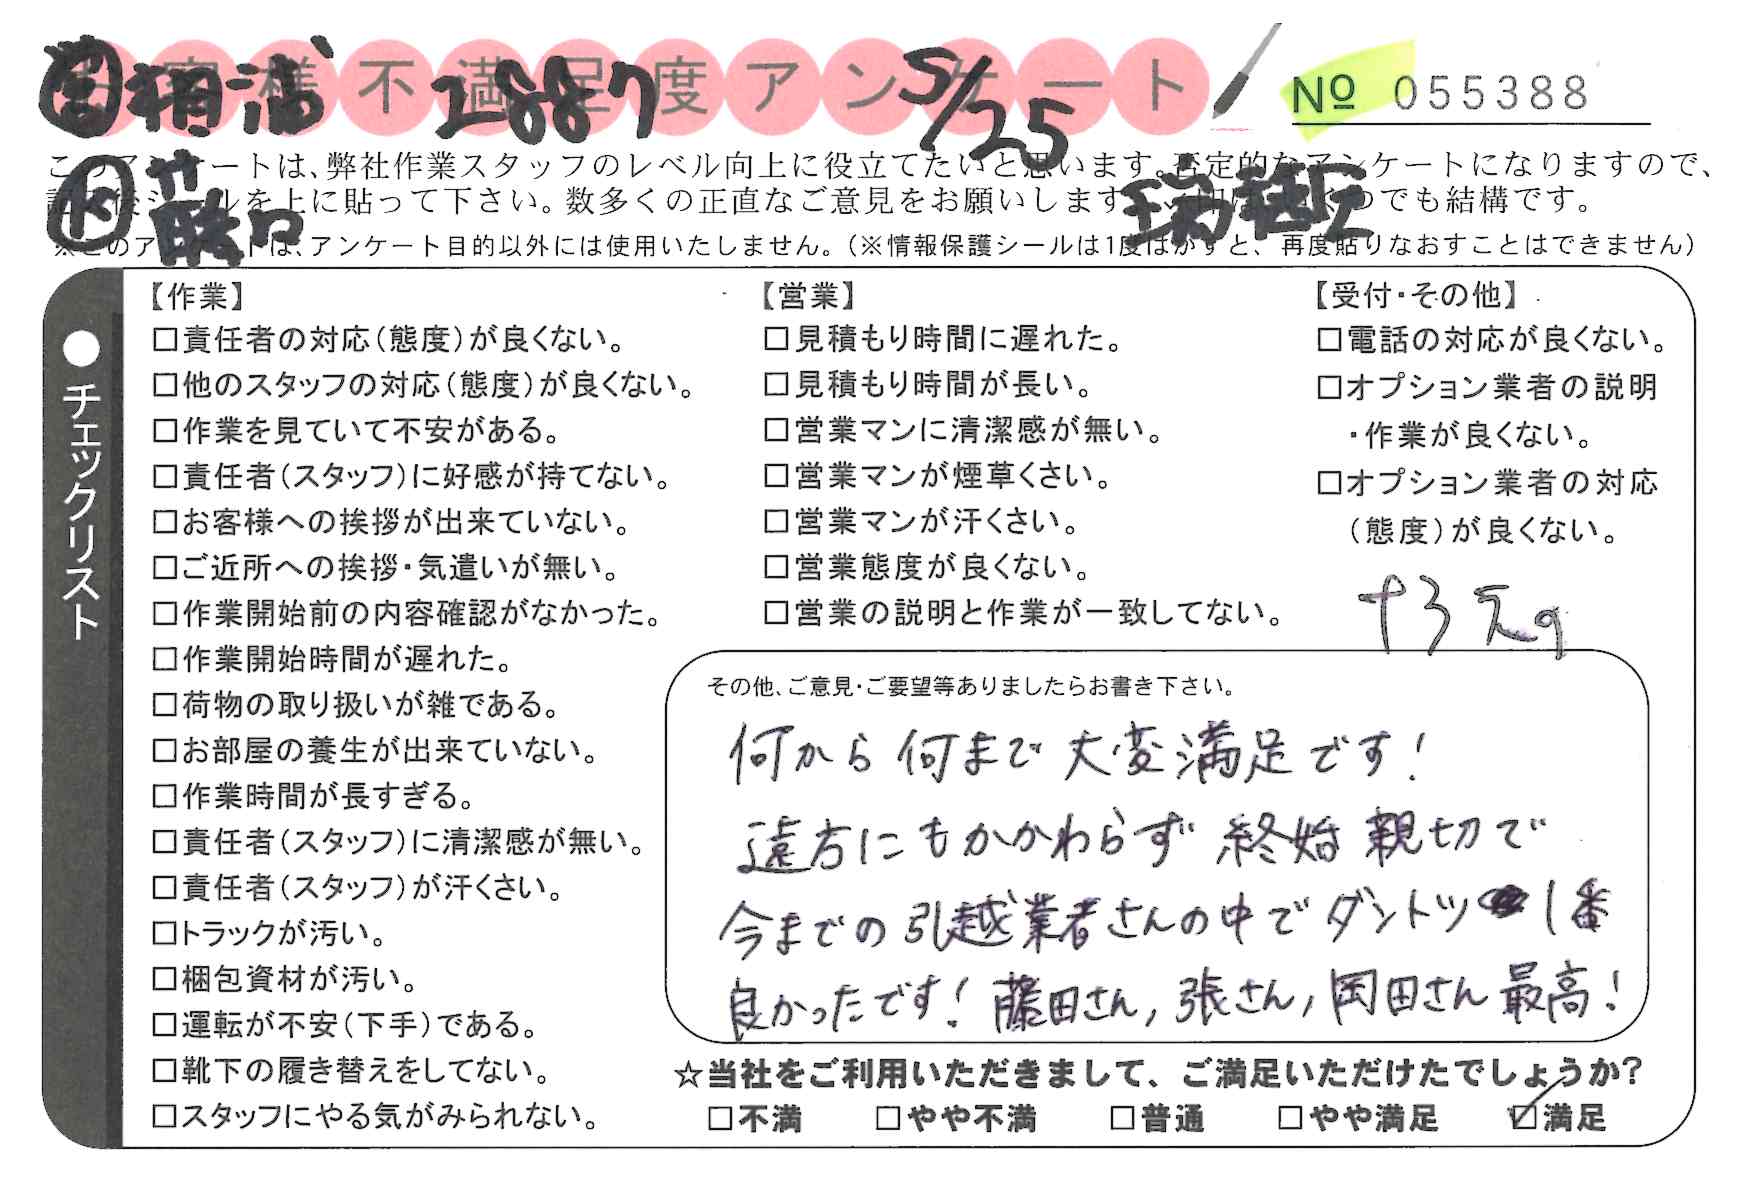 お客様不満足度アンケート
2887
5/25
№ 055388
このアンケートは、弊社作業スタッフのレベル向上に役立てたいと思います。否定的なアンケートになりますので、
記入後シールを上に貼って下さい。数多くの正直なご意見をお願いします。 でも結構です。
※このアンケートは、アンケート目的以外には使用いたしません。（※情報保護シールは1度はがすと、再度貼りなおすことはできません）
●チェックリスト
【作業】
□責任者の対応（態度）が良くない。
□他のスタッフの対応（態度）が良くない。
□作業を見ていて不安がある。
□責任者（スタッフ）に好感が持てない。
□お客様への挨拶が出来ていない。
□ご近所への挨拶・気遣いが無い。
□作業開始前の内容確認がなかった。
□作業開始時間が遅れた。
□荷物の取り扱いが雑である。
□お部屋の養生が出来ていない。
□作業時間が長すぎる。
□責任者（スタッフ）に清潔感が無い。
□責任者（スタッフ）が汗くさい。
□トラックが汚い。
□梱包資材が汚い。
□運転が不安（下手）である。
□靴下の履き替えをしてない。
□スタッフにやる気がみられない。
【営業】
□見積もり時間に遅れた。
□見積もり時間が長い。
□営業マンに清潔感が無い。
□営業マンが煙草くさい。
□営業マンが汗くさい。
□営業態度が良くない。
□営業の説明と作業が一致してない。
【受付・その他】
□電話の対応が良くない。
□オプション業者の説明
・作業が良くない。
□オプション業者の対応
（態度）が良くない。
その他、ご意見・ご要望等ありましたらお書き下さい。
何から何まで大変満足です！
遠方にもかかわらず 終始 親切で
今までの引越業者さんの中でダントツ 1番
良かったです！藤田さん，張さん，岡田さん 最高！
☆当社をご利用いただきまして、ご満足いただけたでしょうか？
□不満 □やや不満 □普通 □やや満足 ☑満足